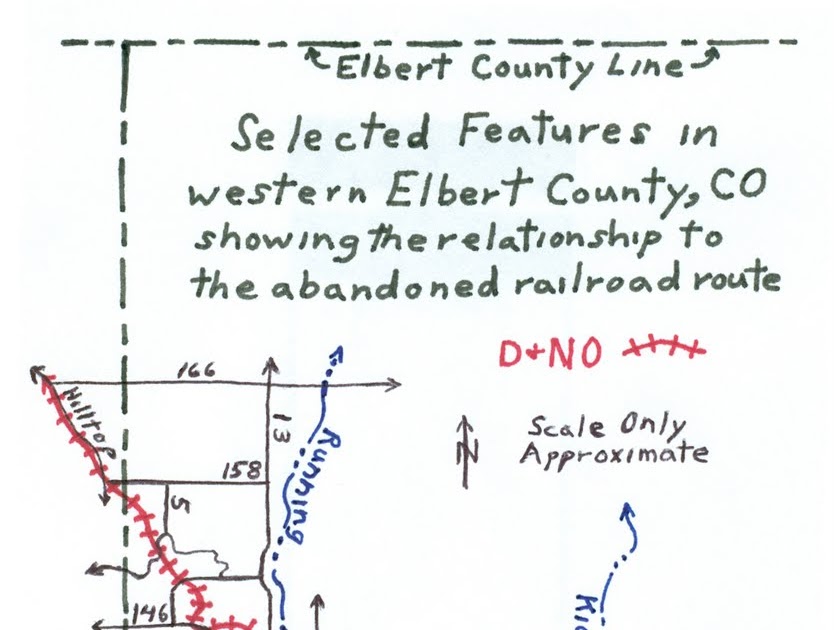 Elbert County Line
Selected Features in
western Elbert County, CO
showing the relationship to
the abandoned railroad route
D+NO
166
Hilltop
13
Running
N
Scale Only
Approximate
158
5
146